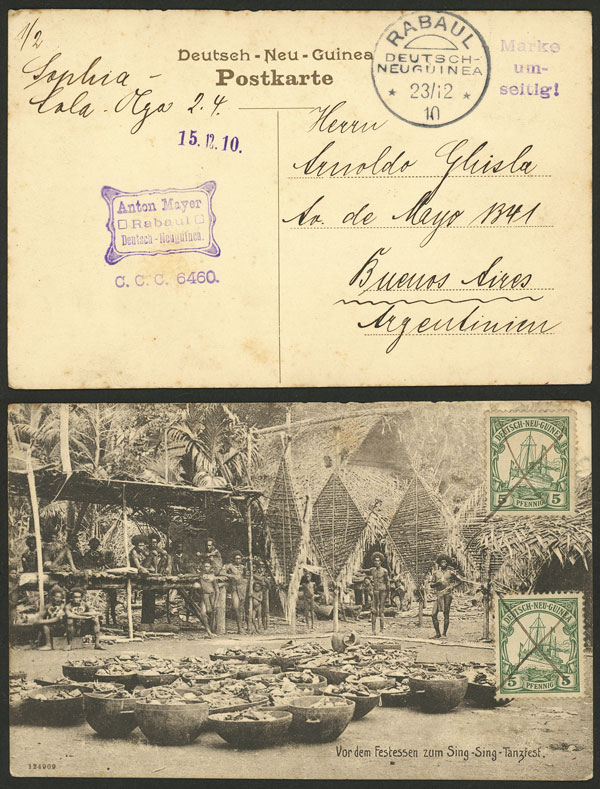 1/2
Deutsch-Neu-Guinea
Postkarte
Sophia -
Lola - Olga 2.4.
15.12.10.
RABAUL
DEUTSCH-
NEUGUINEA
* 23/12 *
10
Marke
um-
seitig!
Anton Mayer
Rabaul
Deutsch-Neuguinea.
C. C. C. 6460.
Herrn
Arnoldo Ghisla
Av. de Mayo 1341
Buenos Aires
Argentinien
DEUTSCH-NEU-GUINEA
5 PFENNIG 5
DEUTSCH-NEU-GUINEA
5 PFENNIG 5
Vor dem Festessen zum Sing-Sing-Tanzfest.
134909